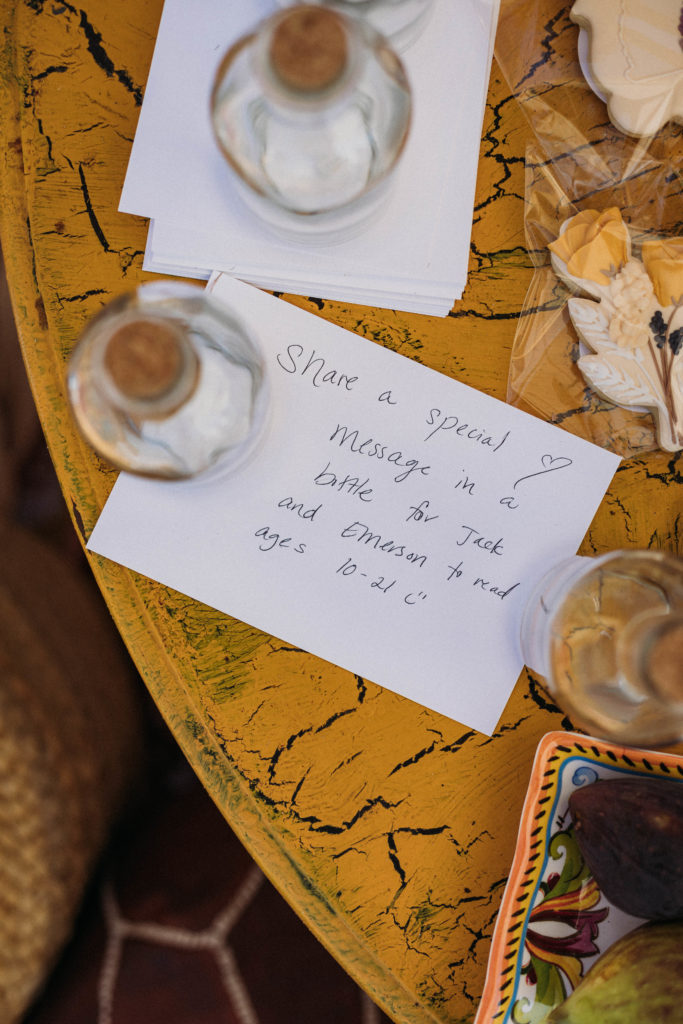 Share a special ♡
message in a
bottle for Jack
and Emerson to read
ages 10-21 :)